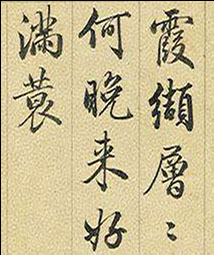 霞纈層〻
何晚来好
滿蓑